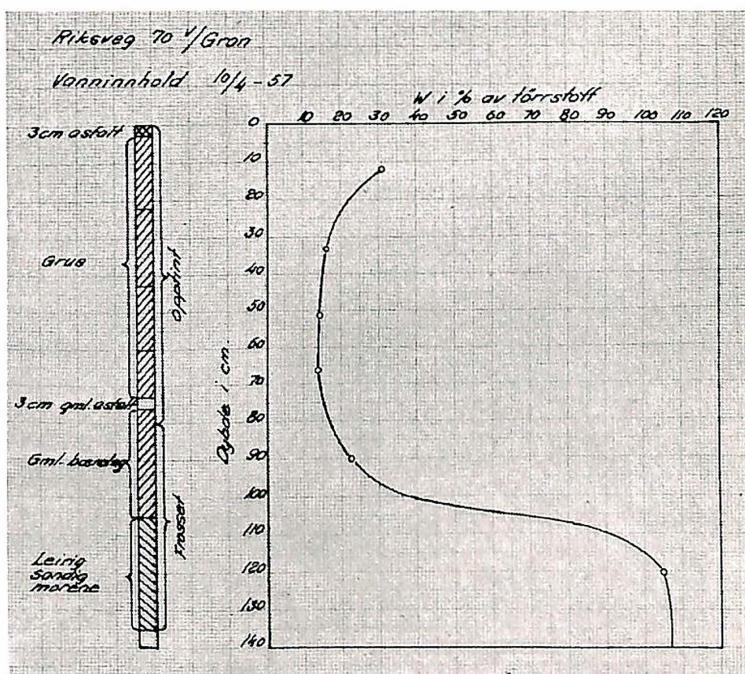 Riksveg 70 v/Gran
Vanninnhold 10/4-57
W i % av törrstoff
10 20 30 40 50 60 70 80 90 100 110 120
0
10
20
30
40
50
60
70
80
90
100
110
120
130
140
Dybde i cm.
3cm asfalt
Grus
Opptint
3cm gml. asfalt
Gml. bærelag
Frosset
Leirig
sandig
morene